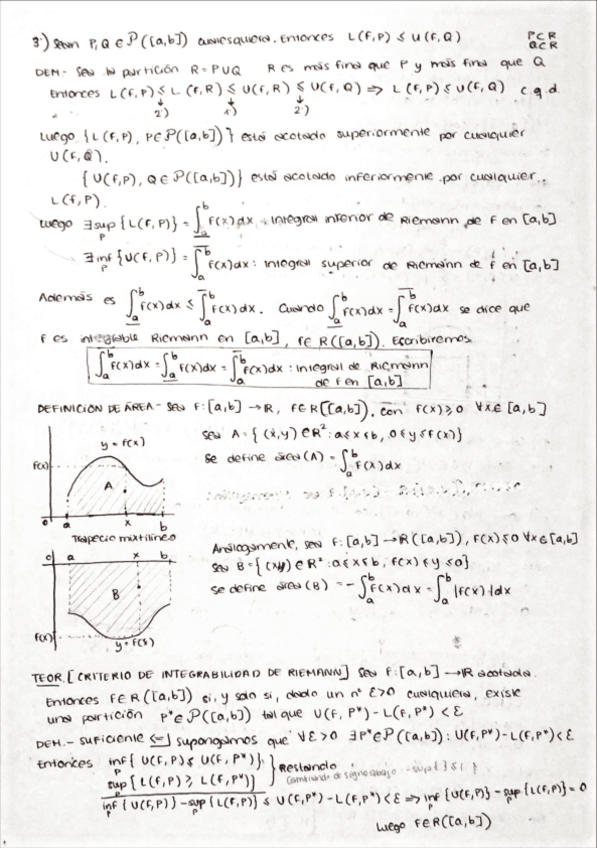 3) Sean P, Q ∈ P([a,b]) cualesquiera. Entonces L(F,P) ≤ U(F,Q)
P⊂R
Q⊂R
DEM- Sea la partición R = P∪Q R es más fina que P y más fina que Q
Entonces L(F,P) ≤ L(F,R) ≤ U(F,R) ≤ U(F,Q) ⇒ L(F,P) ≤ U(F,Q) c.q.d.
2) 1) 2)
Luego {L(F,P), P∈P([a,b])} está acotado superiormente por cualquier
U(F,Q).
{U(F,P), Q∈P([a,b])} está acotado inferiormente por cualquier
L(F,P).
Luego ∃ sup_P {L(F,P)} = ∫_a^b F(x)dx : Integral inferior de Riemann de F en [a,b]
∃ inf_P {U(F,P)} = ∫_a^b F(x)dx : Integral superior de Riemann de F en [a,b]
Además es ∫_a^b F(x)dx ≤ ∫_a^b F(x)dx. Cuando ∫_a^b F(x)dx = ∫_a^b F(x)dx se dice que
F es integrable Riemann en [a,b], F∈R([a,b]). Escribiremos
∫_a^b F(x)dx = ∫_a^b F(x)dx = ∫_a^b F(x)dx : Integral de Riemann
de F en [a,b]
DEFINICIÓN DE ÁREA- Sea F:[a,b] → R, F∈R([a,b]), con F(x) ≥ 0 ∀x∈[a,b]
Sea A = {(x,y)∈R² : a≤x≤b, 0≤y≤F(x)}
Se define área(A) = ∫_a^b F(x)dx
y = F(x)
F(x)
A
0 a x b
Trapecio mixtilíneo
Análogamente, sea F:[a,b] → R([a,b]), F(x) ≤ 0 ∀x∈[a,b]
Sea B = {(x,y)∈R² : a≤x≤b, F(x) ≤ y ≤ 0}
Se define área(B) = -∫_a^b F(x)dx = ∫_a^b |F(x)|dx
0 a x b
B
F(x)
y = F(x)
TEOR. [CRITERIO DE INTEGRABILIDAD DE RIEMANN] Sea F:[a,b] → R acotada.
Entonces F∈R([a,b]) si, y solo si, dado un nº ε>0 cualquiera, existe
una partición P*∈P([a,b]) tal que U(F,P*) - L(F,P*) < ε
DEM.- Suficiente ⇐ Supongamos que ∀ε>0 ∃P*∈P([a,b]) : U(F,P*) - L(F,P*) < ε
Entonces inf_P {U(F,P)} ≤ U(F,P*)
sup_P {L(F,P)} ≥ L(F,P*)
Restando
Cambiando de signo abajo
inf_P {U(F,P)} - sup_P {L(F,P)} ≤ U(F,P*) - L(F,P*) < ε ⇒ inf_P {U(F,P)} - sup_P {L(F,P)} = 0
Luego F∈R([a,b])